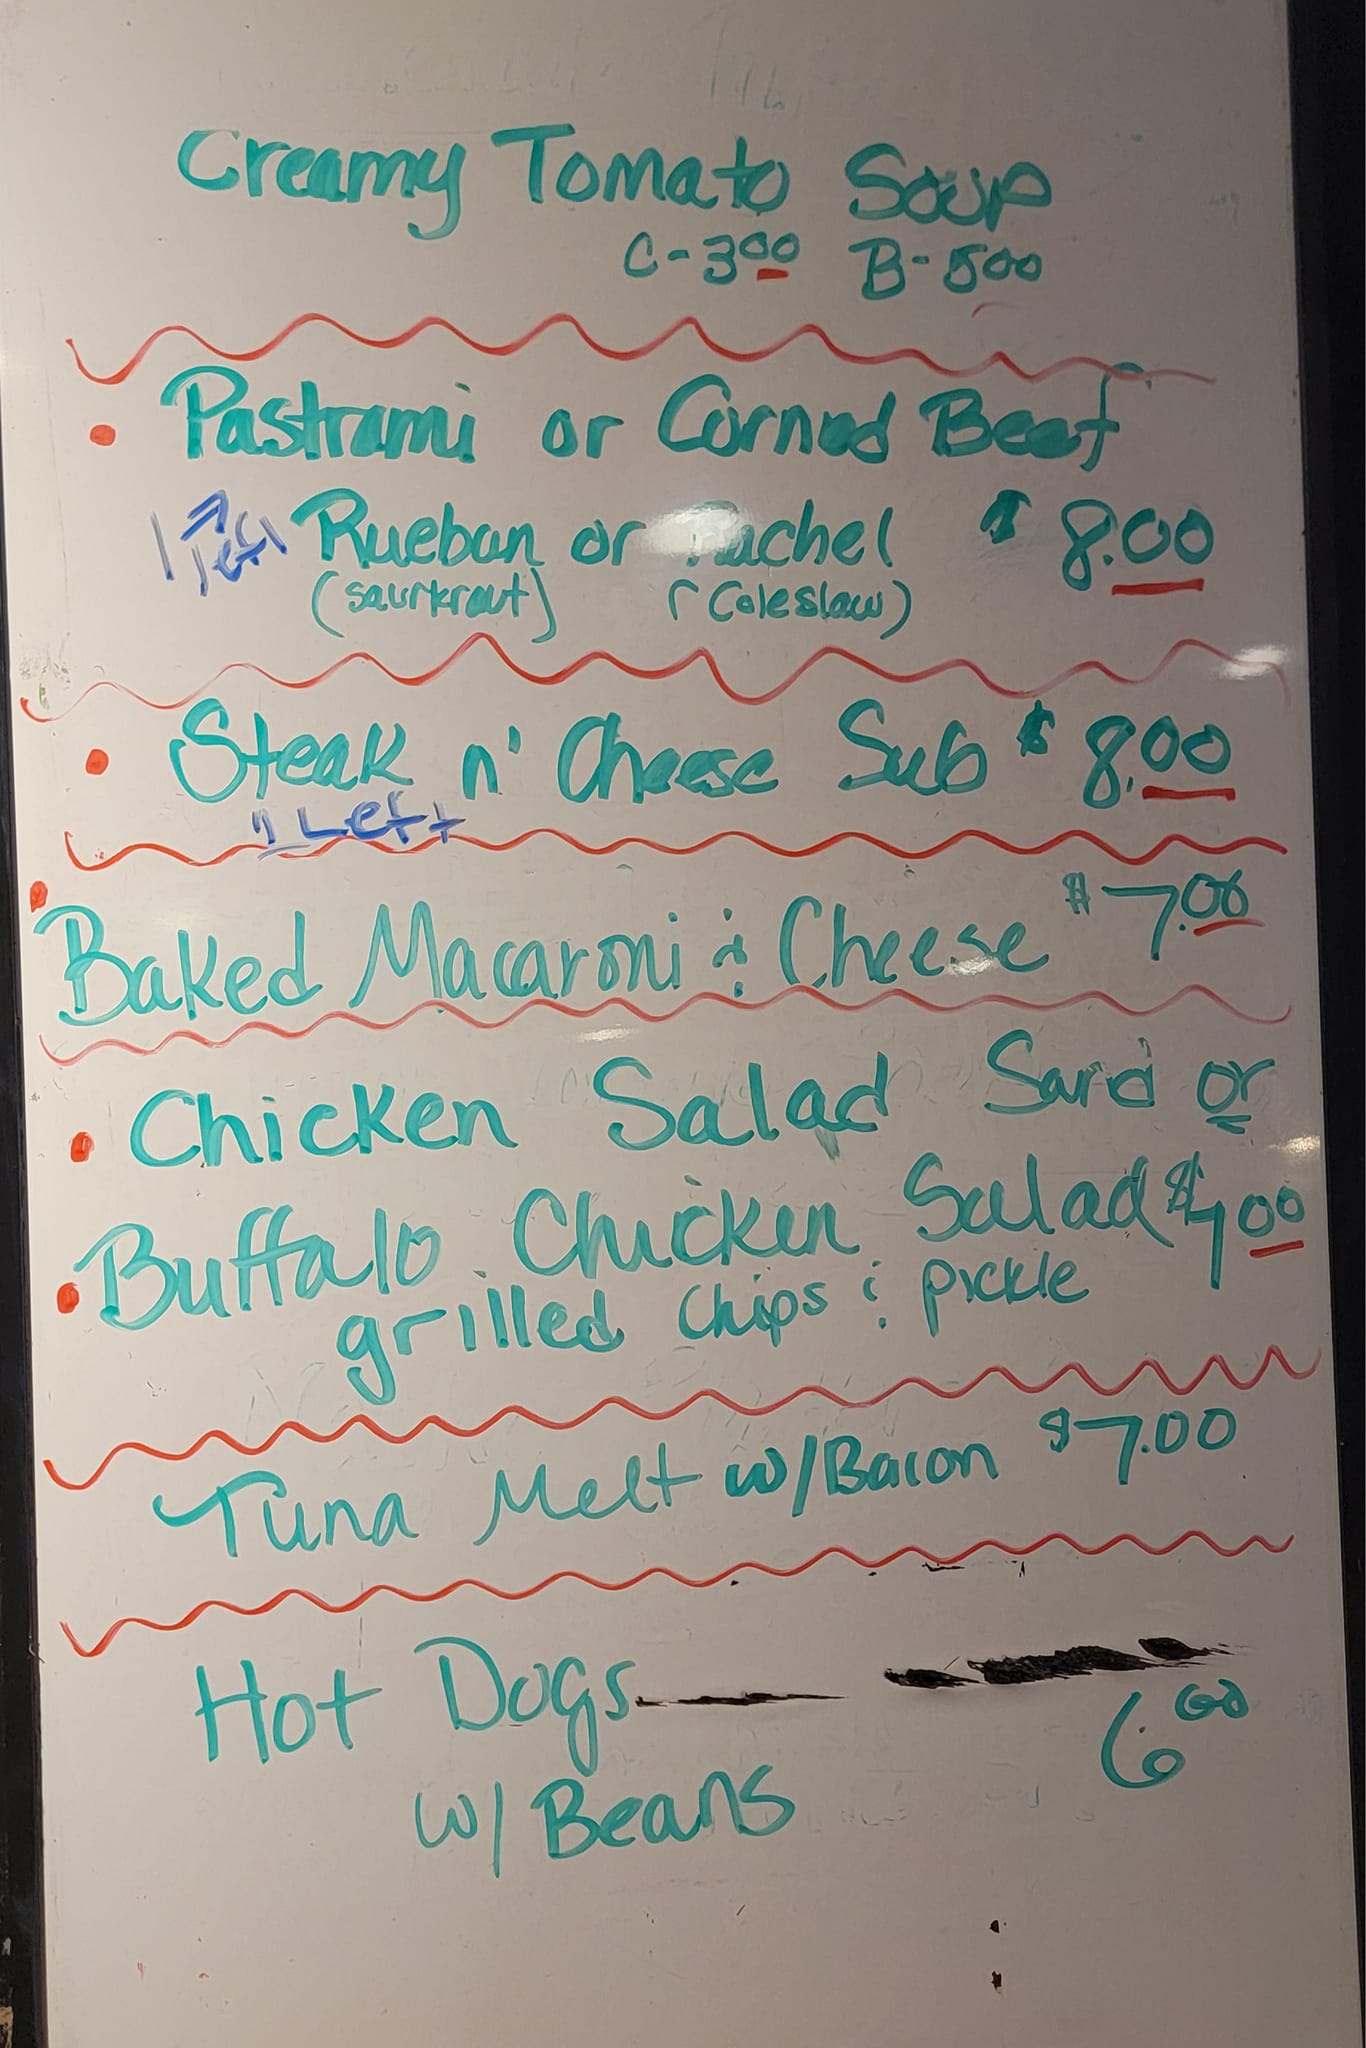 Creamy Tomato Soup
C-3.00 B-500
Pastrami or Corned Beef
Left Rueban or Rachel $ 8.00
(saurkraut) (Coleslaw)
Steak n' Cheese Sub $ 8.00
Left
Baked Macaroni & Cheese $7.00
Chicken Salad Sand or
Buffalo Chicken Salad $
grilled Chips & pickle
Tuna Melt w/Bacon $7.00
Hot Dogs
6.00
w/ Beans